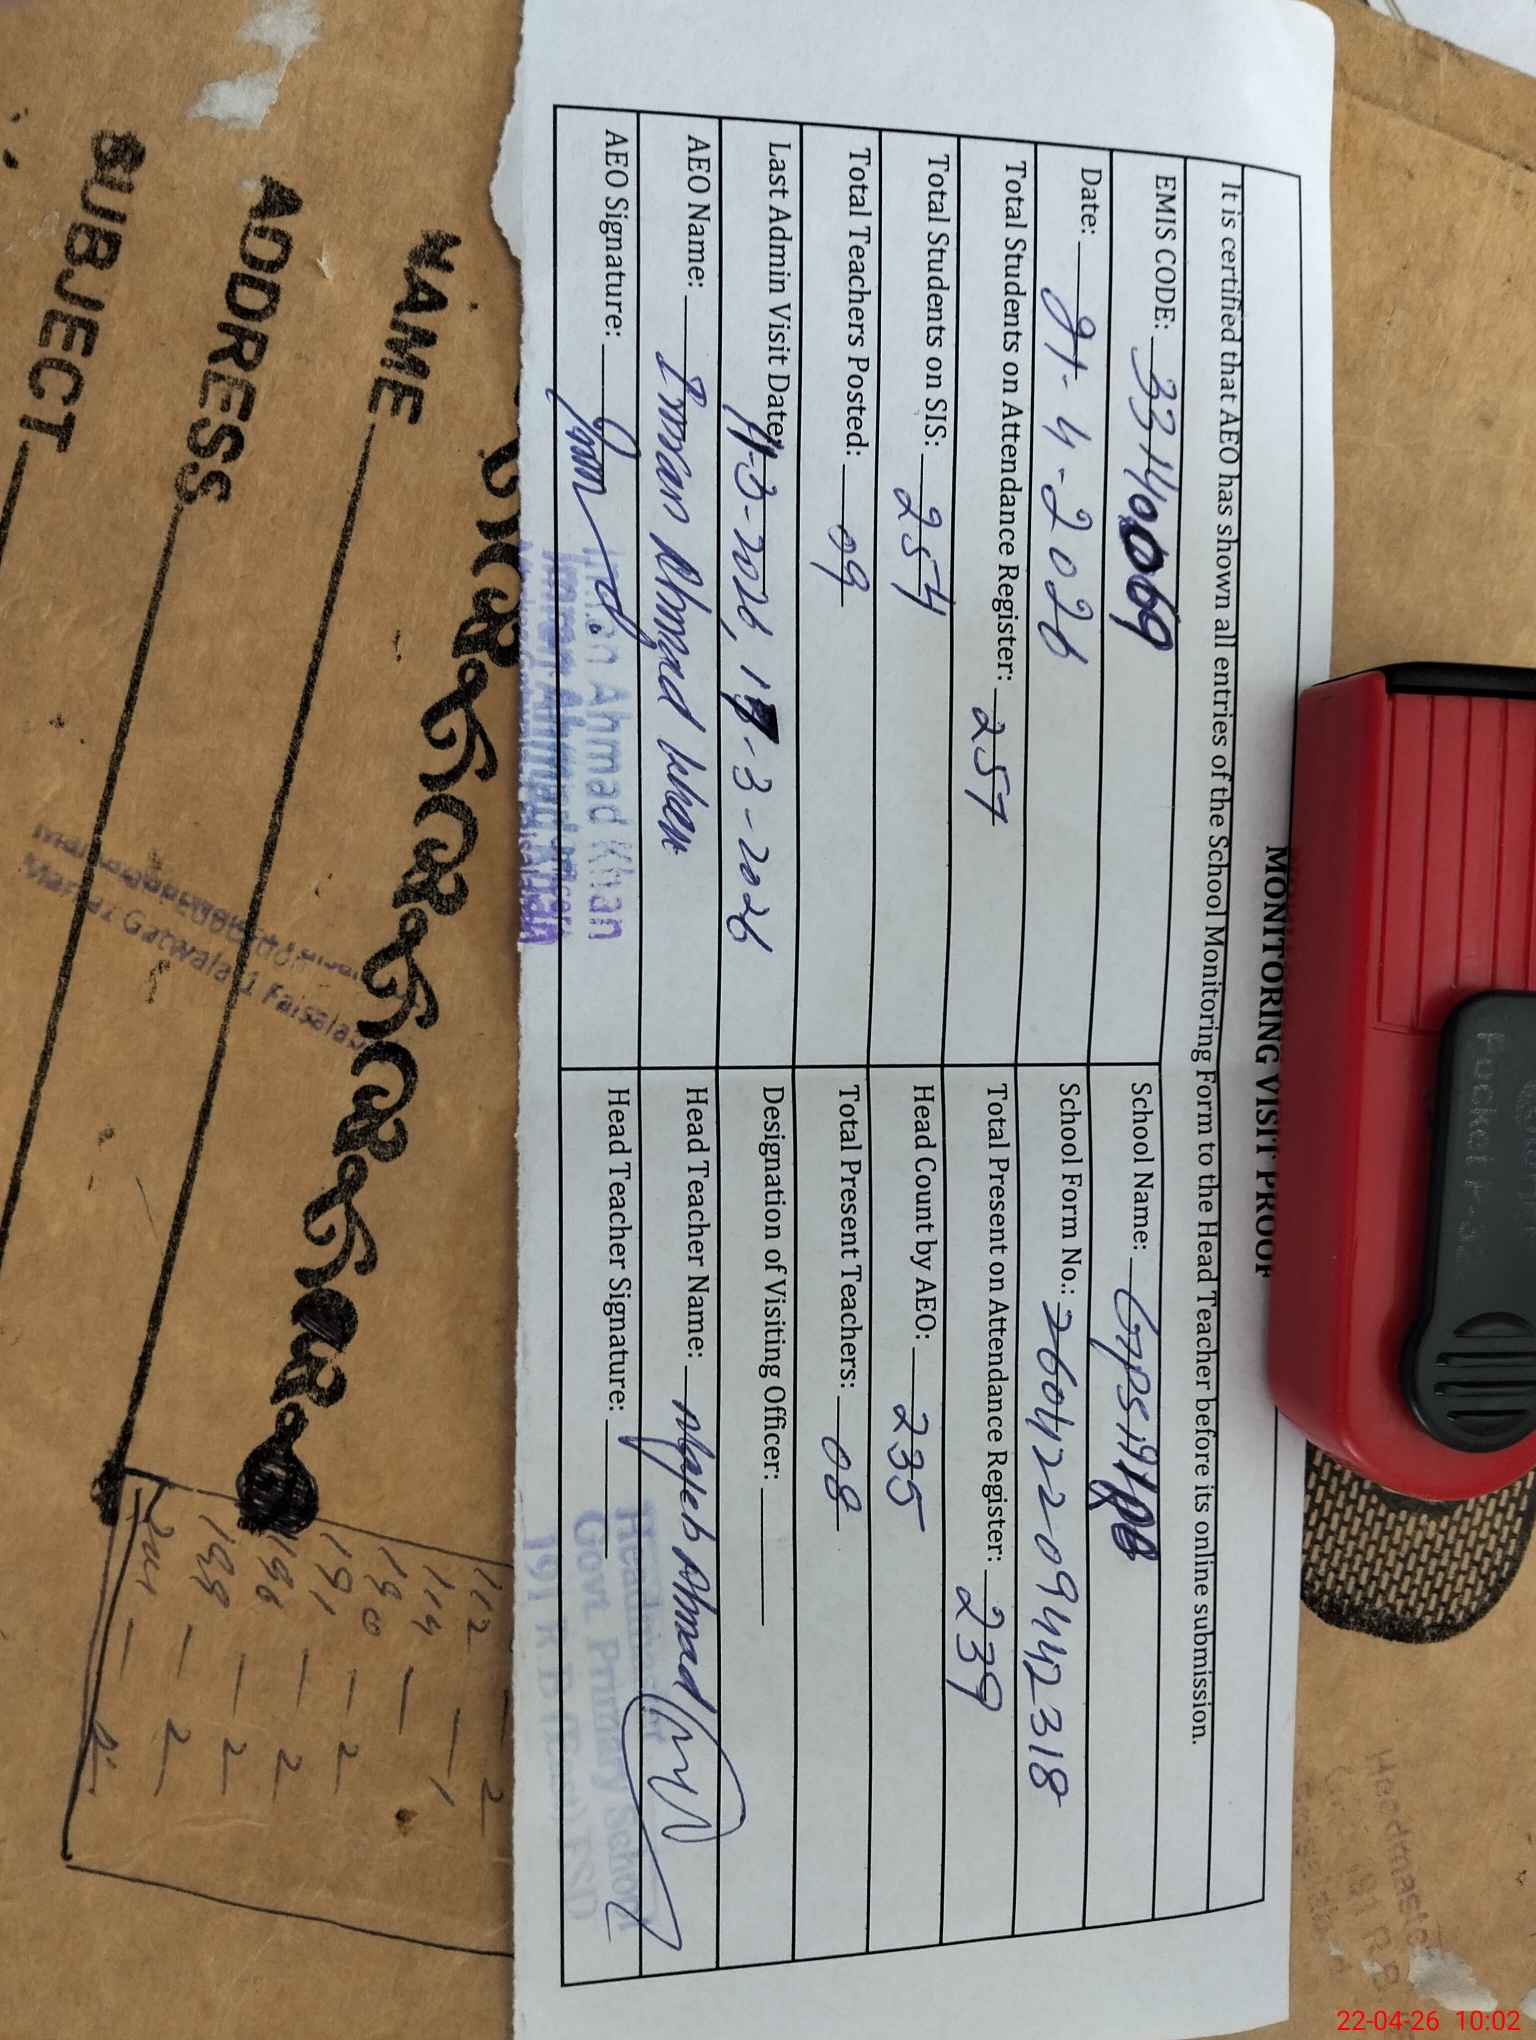 MONITORING VISIT PROOF
It is certified that AEO has shown all entries of the School Monitoring Form to the Head Teacher before its online submission.
EMIS CODE: 33140069
School Name: GPS 191 RB
Date: 21-4-2026
School Form No.: 26042209442318
Total Students on Attendance Register: 257
Total Present on Attendance Register: 239
Total Students on SIS: 254
Head Count by AEO: 235
Total Teachers Posted: 09
Total Present Teachers: 08
Last Admin Visit Date: 11-3-2026, 17-3-2026
Designation of Visiting Officer:
AEO Name: Imran Ahmad Khan
Head Teacher Name: Ahmad
AEO Signature:
Head Teacher Signature:
Imran Ahmad Khan
Imran Ahmad Khan
Headmaster
Govt. Primary School
191 R B (East) FSD
NAME
ADDRESS
SUBJECT
Markaz Gatwala Faisalabad
112 — 2
114 — 1
190 —
191 — 2
196 — 2
198 — 2
— 2
Headmaster
191 RB
Pocket
22-04-26 10:02